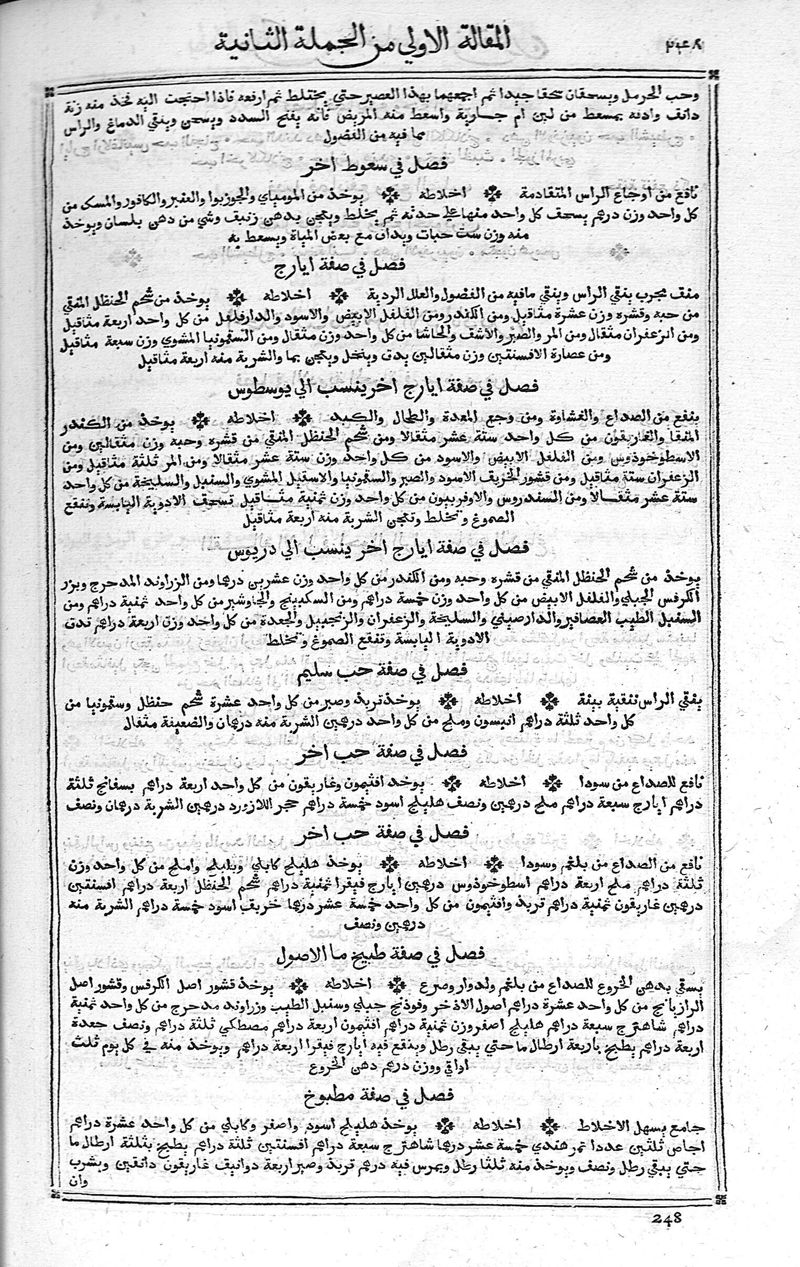 المقالة الاولي من الجملة الثانية
٢٤٨
وحب الحرمل ويسحقان سحقا جيدا ثم اجمعهما بهذا العصير حتي يختلط ثم ارفعه فاذا احتجت اليه فخذ منه زنة
دانق وادفه بمسعط من لبن ام جارية واسعط منه المريض فانه يفتح السدد ويسخن وينقي الدماغ والراس
مما فيه من الفضول
فصل في سعوط اخر
نافع من اوجاع الراس المتقادمة اخلاطه يوخذ من المومياي والجوزبوا والعنبر والكافور والمسك من
كل واحد وزن درهم يسحق كل واحد منها علي حدته ثم يخلط ويعجن بدهن زنبق وشي من دهن بلسان ويوخذ
منه وزن ست حبات ويداف مع بعض المياة ويسعط به
فصل في صفة ايارج
منف مجرب ينقي الراس وينقي مافيه من الفضول والعلل الردية اخلاطه يوخذ من شحم الحنظل المنقي
من حبه وقشره وزن عشرة مثاقيل ومن الكندر ومن الفلفل الابيض والاسود والدارفلفل من كل واحد اربعة مثاقيل
ومن الزعفران مثقال ومن المر والصبر والاشف والحاشا من كل واحد وزن مثقال ومن السقمونيا المشوي وزن سبعة مثاقيل
ومن عصارة الافسنتين وزن مثقالين يدق وينخل ويعجن بما والشربة منه اربعة مثاقيل
فصل في صفة ايارج اخر ينسب الي يوسطوس
ينفع من الصداع والغشاوة ومن وجع المعدة والطحال والكبد اخلاطه يوخذ من الكندر
المنقا والغاريقون من كل واحد ستة عشر مثقالا ومن شحم الحنظل المنقي من قشره وحبه وزن مثقالين ومن
الاسطوخوذوس ومن الفلفل الابيض والاسود من كل واحد وزن ستة عشر مثقالا ومن المر ثلثة مثاقيل ومن
الزعفران ستة مثاقيل ومن قشور الخربق الاسود والصبر والسقمونيا والاسقيل المشوي والسنبل والسليخة من كل واحد
ستة عشر مثقالا ومن السندروس والاوفربيون من كل واحد وزن ثمنية مثاقيل تسحق الادوية اليابسة وتنقع
الصموغ وتخلط وتعجن الشربة منه اربعة مثاقيل
فصل في صفة ايارج اخر ينسب الي دريوس
يوخذ من شحم الحنظل المنقي من قشره وحبه ومن الكندر من كل واحد وزن عشرين درهما ومن الزراوند المدحرج وبزر
الكرفس الجبلي والفلفل الابيض من كل واحد وزن خمسة دراهم ومن السكبينج والجاوشير من كل واحد ثمنية دراهم ومن
السنبل الطيب العصافير والدارصيني والسليخة والزعفران والزنجبيل والجعدة من كل واحد وزن اربعة دراهم تدق
الادوية اليابسة وتنقع الصموغ وتخلط
فصل في صفة حب سليم
ينقي الراس تنقية بينة اخلاطه يوخذ تربد وصبر من كل واحد عشرة شحم حنظل وسقمونيا من
كل واحد ثلثة دراهم انيسون وملح من كل واحد درهمين الشربة منه درهمان والضعيفة مثقال
فصل في صفة حب اخر
نافع للصداع من سودا اخلاطه يوخد افتيمون وغاريقون من كل واحد اربعة دراهم بسفانج ثلثة
دراهم ايارج سبعة دراهم ملح درهمين ونصف هليلج اسود خمسة دراهم حجر اللازورد درهمين الشربة درهمان ونصف
فصل في صفة حب اخر
نافع من الصداع من بلغم وسودا اخلاطه يوخذ هليلج كابلي وبليلج واملج من كل واحد وزن
ثلثة دراهم ملح اربعة دراهم اسطوخوذوس درهمين ايارج فيقرا ثمنية دراهم شحم الحنظل اربعة دراهم افسنتين
درهمين غاريقون ثمنية دراهم تربد وافتيمون من كل واحد خمسة عشر درهما خربق اسود خمسة دراهم الشربة منه
درهمين ونصف
فصل في صفة طبيخ ما الاصول
يسقي بدهن الخروع للصداع من بلغم ولدوار وصرع اخلاطه يوخذ قشور اصل الكرفس وقشور اصل
الرازيانج من كل واحد عشرة دراهم اصول الاذخر وفوذنج جبلي وسنبل الطيب وزراوند مدحرج من كل واحد ثمنية
دراهم شاهترج سبعة دراهم هليلج اصفر وزن ثمنية دراهم افتيمون اربعة دراهم مصطكي ثلثة دراهم ونصف جعدة
اربعة دراهم يطبخ باربعة ارطال ما حتي يبقي رطل وينقع فيه ايارج فيقرا اربعة دراهم ويوخذ منه في كل يوم ثلث
اواقي ووزن درهم دهن الخروع
فصل في صفة مطبوخ
جامع يسهل الاخلاط اخلاطه يوخذ هليلج اسود واصفر وكابلي من كل واحد عشرة دراهم
اجاص ثلثين عددا تمر هندي خمسة عشر درهما شاهترج سبعة دراهم افسنتين ثلثة دراهم يطبخ بثلثة ارطال ما
حتي يبقي رطل ونصف ويوخذ منه ثلثا رطل ويمرس فيه درهم تربد وصبر اربعة دوانيق غاريقون دانقين ويشرب
وان
248